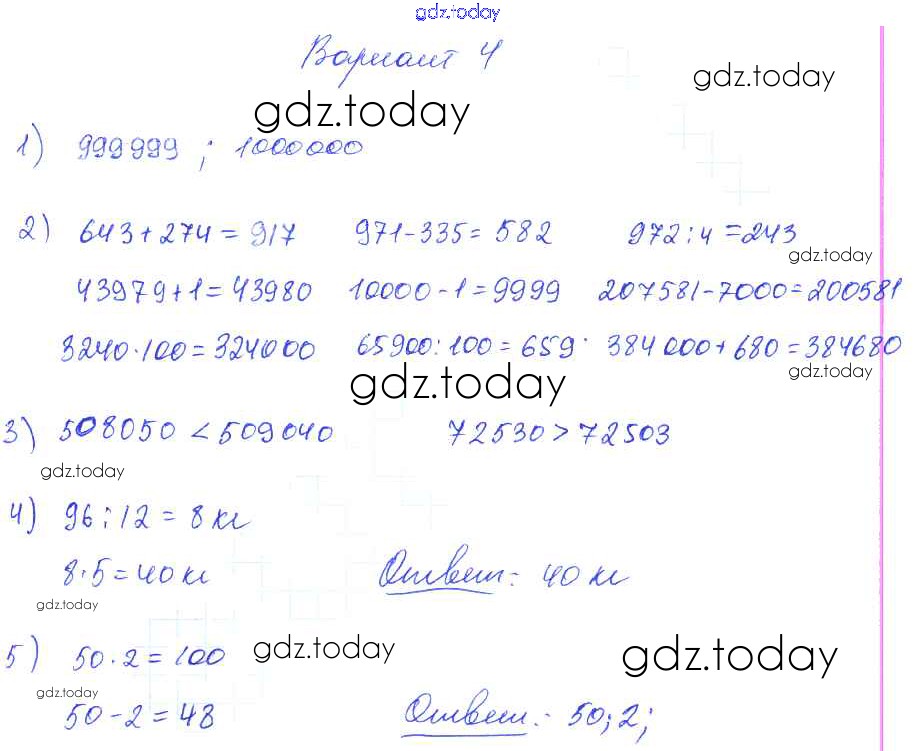 gdz.today
Вариант 4
gdz.today
gdz.today
1) 999999 ; 1000000
2) 643+274=917 971-335=582 972:4=243
gdz.today
43979+1=43980 10000-1=9999 207581-7000=200581
3240·100=324000 65900:100=659 384000+680=384680
gdz.today
gdz.today
3) 508050<509040 72530>72503
gdz.today
4) 96:12=8 кг
8·5=40 кг Ответ: 40 кг
gdz.today
5) 50·2=100
gdz.today
gdz.today
gdz.today
50-2=48 Ответ: 50; 2;